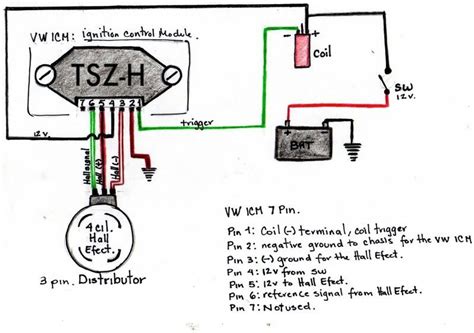 VW ICM: ignition control Module.
TSZ-H
7 6 5 4 3 2 1
12v.
Hall signal
Hall (+)
Hall (-)
trigger
+ -
Coil
SW
12v.
BAT
4 cil.
Hall
Efect.
3 pin. Distributor
VW ICM 7 Pin.
Pin 1: Coil (-) terminal, coil trigger
Pin 2: negative ground to chasis for the VW ICM
Pin 3: (-) ground for the Hall Efect.
Pin 4: 12v from SW
Pin 5: 12v to Hall Efect.
Pin 6: reference signal from Hall Efect
Pin 7: Not used.